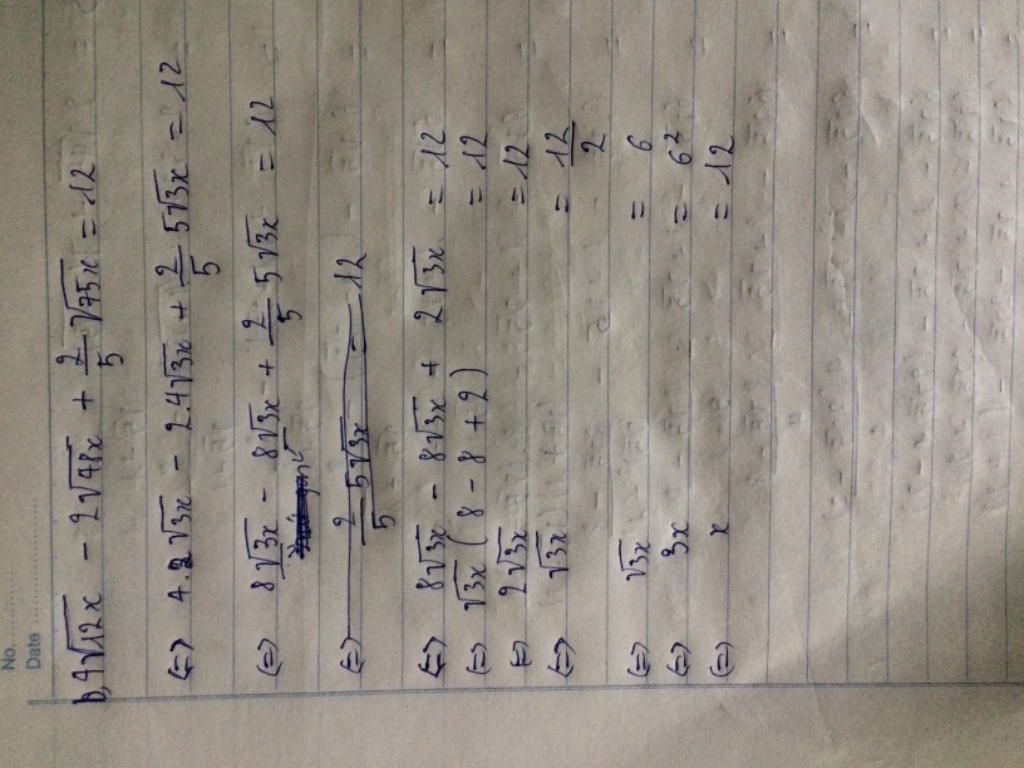 No. ..........
Date ....................
b, 4√12x - 2√48x + 2/5 √75x = 12
(=) 4.2√3x - 2.4√3x + 2/5 5√3x = 12
(=) 8√3x - 8√3x + 2/5 5√3x = 12
(=) 2/5 5√3x = 12
(=) 8√3x - 8√3x + 2√3x = 12
(=) √3x (8 - 8 + 2) = 12
(=) 2√3x = 12
(=) √3x = 12/2
(=) √3x = 6
(=) 3x = 6²
(=) x = 12